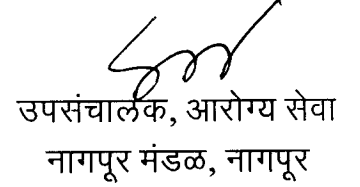 उपसंचालक, आरोग्य सेवा
नागपूर मंडळ, नागपूर